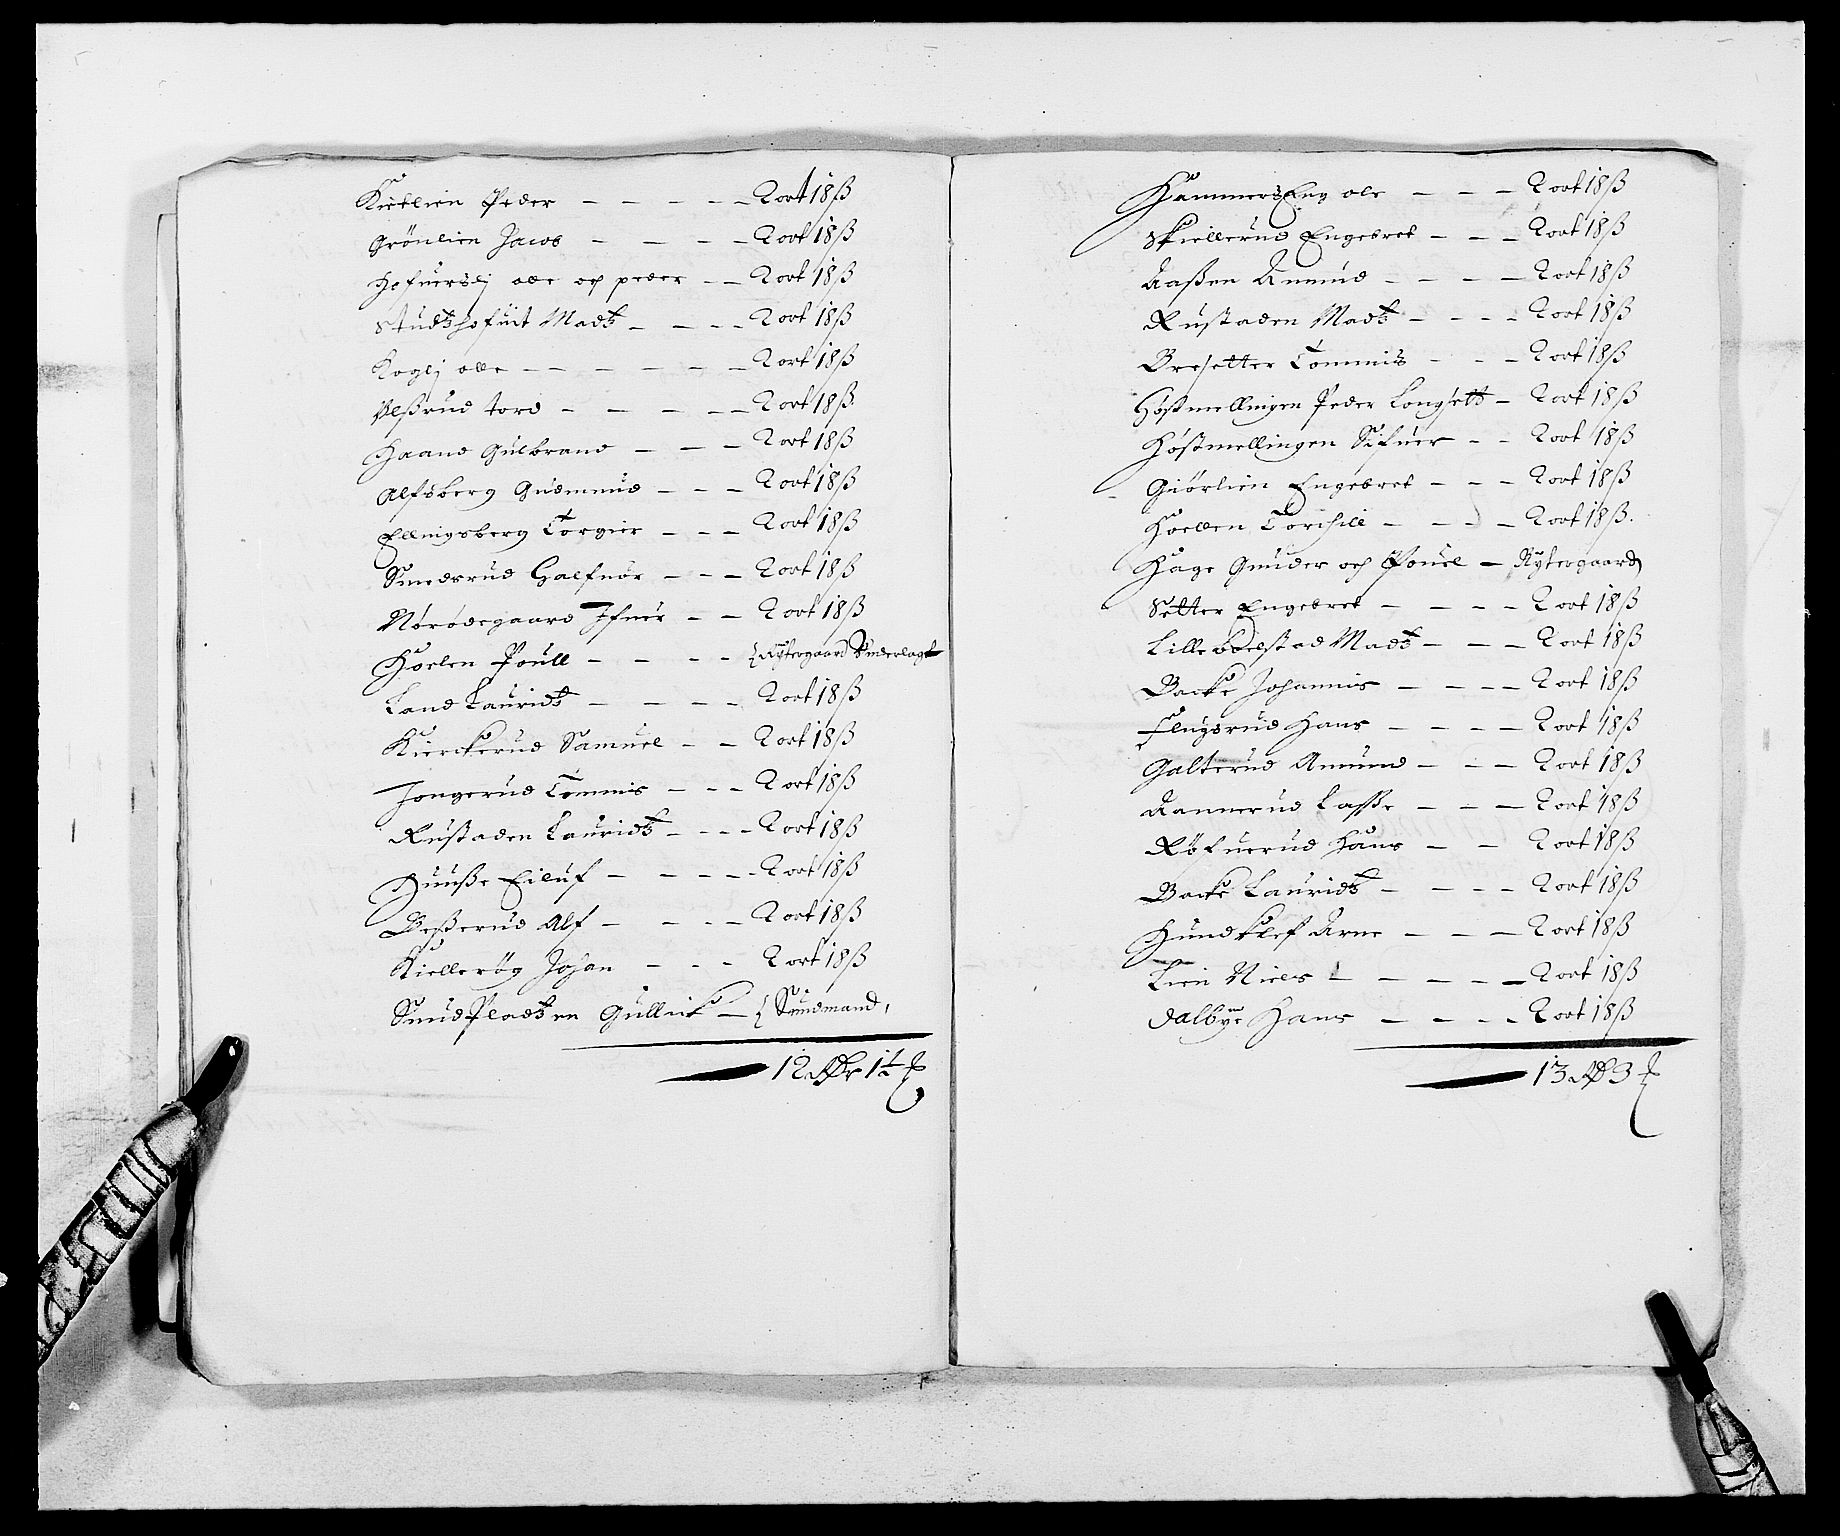 Kietlien Peder — — — — 2 ort 18 ß
Grönlien Jacob — — — — 2 ort 18 ß
Hofuerslj olle och peder — — 2 ort 18 ß
Studtzhofuit Madtz — — — 2 ort 18 ß
Koglj olle — — — — — 2 ort 18 ß
Ulßrud tord — — — — 2 ort 18 ß
Haand Gulbrand — — — 2 ort 18 ß
Alfsberg Gudmund — — — 2 ort 18 ß
Ellingsberg Torgier — — — 2 ort 18 ß
Smedsrud Halfuor — — — 2 ort 18 ß
Nordegaard Ifuer — — 2 ort 18 ß
Hoelen Poull — — — — { Rytergaard Underlagt
Land Lauridtz — — — — 2 ort 18 ß
Kierckerud Samuel — — 2 ort 18 ß
Jongerud Tommis — — — 2 ort 18 ß
Rustaden Lauridtz — — — 2 ort 18 ß
Huuße Eiluf — — — — 2 ort 18 ß
Beßerud Alf — — — — 2 ort 18 ß
Kiellerög Johan — — — 2 ort 18 ß
SundPladtzen Gullick — { Sundmand,
12 Rdr 1½
Hammers Eng ole — — — 2 ort 18 ß
Skiellerud Engebret — — — 2 ort 18 ß
Aaßen Amund — — — — 2 ort 18 ß
Rustaden Madtz — — — — 2 ort 18 ß
Bresetter Tommis — — — 2 ort 18 ß
Höstmellingen Peder Longsett — 2 ort 18 ß
Höstmellingen Sifuer — — 2 ort 18 ß
Giörlien Engebret — — — 2 ort 18 ß
Hoellen Torchill — — — 2 ort 18 ß.
Hage Gunder och Pouel — Rytergaard
Setter Engebret — — — — 2 ort 18 ß
Lilleboelstad Madtz — — — 2 ort 18 ß
Backe Johannis — — — — 2 ort 18 ß
Flugsrud Hans — — — — 2 ort 18 ß
Galterud Amund — — — 2 ort 18 ß
Aannerud Lasse — — — 2 ort 18 ß
Röfuerud Hans — — 2 ort 18 ß
Backe Lauridtz — — — — 2 ort 18 ß
Hundklef Arne — — — 2 ort 18 ß
Lien Niels — — — — — 2 ort 18 ß
Dalbye Hans — — — — 2 ort 18 ß
13 Rd 3